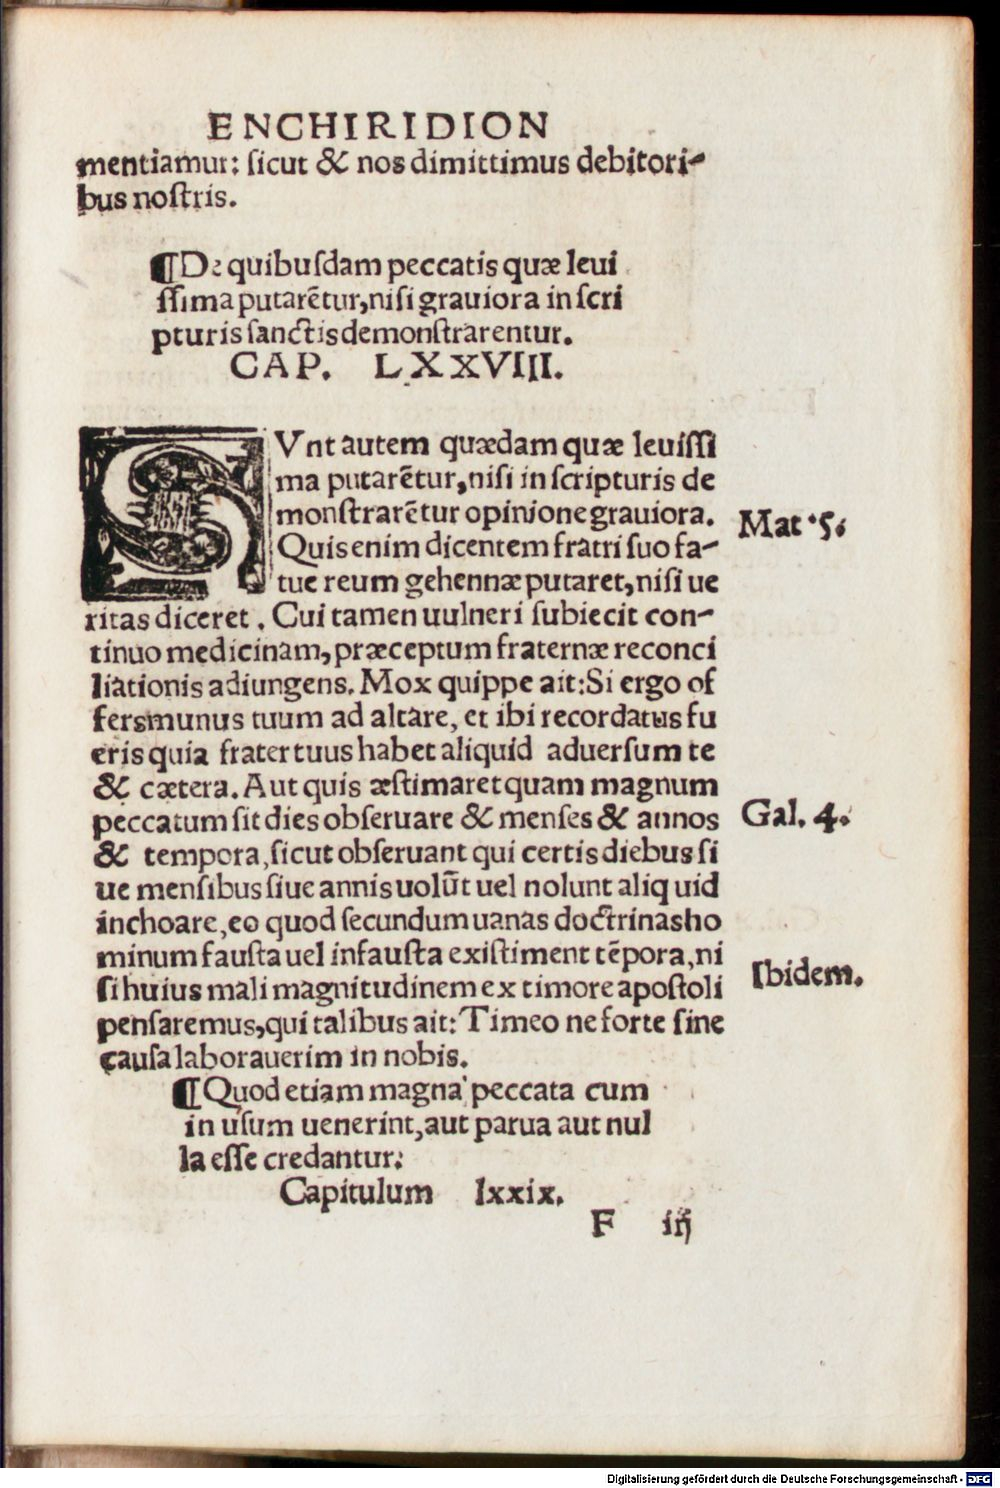 ENCHIRIDION
mentiamur: ſicut & nos dimittimus debitori-
bus noſtris.
¶De quibuſdam peccatis quæ leui
ſſima putarẽtur, niſi grauiora in ſcri
pturis ſanctis demonſtrarentur.
CAP. LXXVIII.
SVnt autem quædam quæ leuiſſi
ma putarẽtur, niſi in ſcripturis de
monſtrarẽtur opinione grauiora.
Mat 5.
Quis enim dicentem fratri ſuo fa-
tue reum gehennæ putaret, niſi ue
ritas diceret. Cui tamen uulneri ſubiecit con-
tinuo medicinam, præceptum fraternæ reconci
liationis adiungens. Mox quippe ait: Si ergo of
fers munus tuum ad altare, et ibi recordatus fu
eris quia frater tuus habet aliquid aduerſum te
& cætera. Aut quis æſtimaret quam magnum
peccatum ſit dies obſeruare & menſes & annos
Gal. 4.
& tempora, ſicut obſeruant qui certis diebus ſi
ue menſibus ſiue annis uolũt uel nolunt aliquid
inchoare, eo quod ſecundum uanas doctrinas ho
minum fauſta uel infauſta exiſtiment tẽpora, ni
Ibidem.
ſi huius mali magnitudinem ex timore apoſtoli
penſaremus, qui talibus ait: Timeo ne forte ſine
cauſa laborauerim in nobis.
¶Quod etiam magna peccata cum
in uſum uenerint, aut parua aut nul
la eſſe credantur.
Capitulum lxxix.
F iij
Digitalisierung gefördert durch die Deutsche Forschungsgemeinschaft - DFG